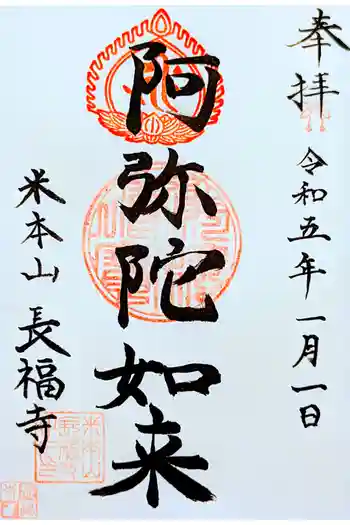 奉拝
令和五年一月一日
阿弥陀如来
米本山 長福寺